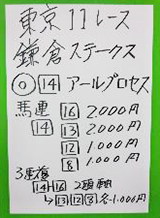 東京11レース
鎌倉ステークス
◎ 14 アールプロセス
馬連 16 2.000円
14 13 2.000円
12 1.000円
8 1.000円
3連複
14-16 2頭軸
→13 12 8 各-1.000円